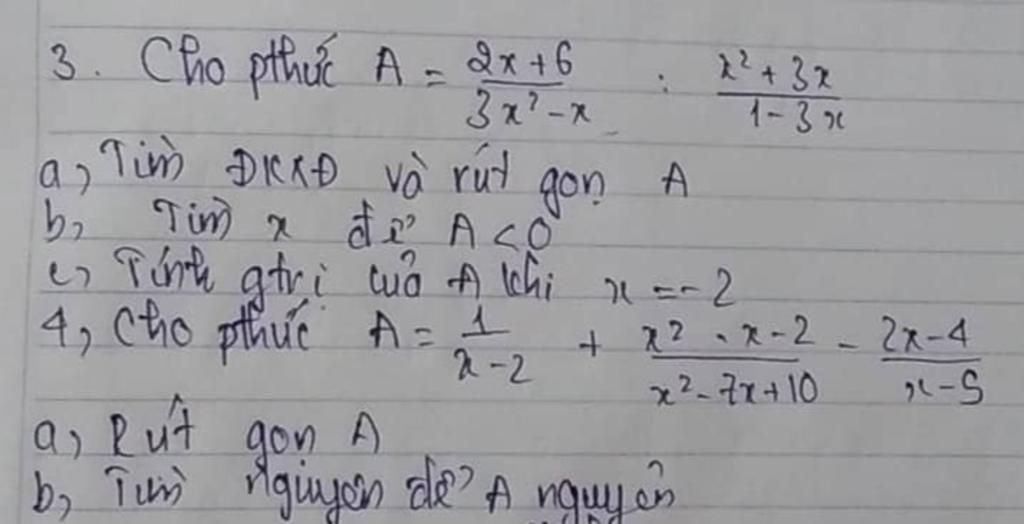 3. Cho pthức A = \frac{2x+6}{3x²-x} : \frac{x²+3x}{1-3x}
a, Tìm ĐKXĐ và rút gọn A
b, Tìm x để A<0
c, Tính gtrị của A khi x=-2
4, Cho pthức A = \frac{1}{x-2} + \frac{x²-x-2}{x²-7x+10} - \frac{2x-4}{x-5}
a, Rút gọn A
b, Tìm nguyên để A nguyên